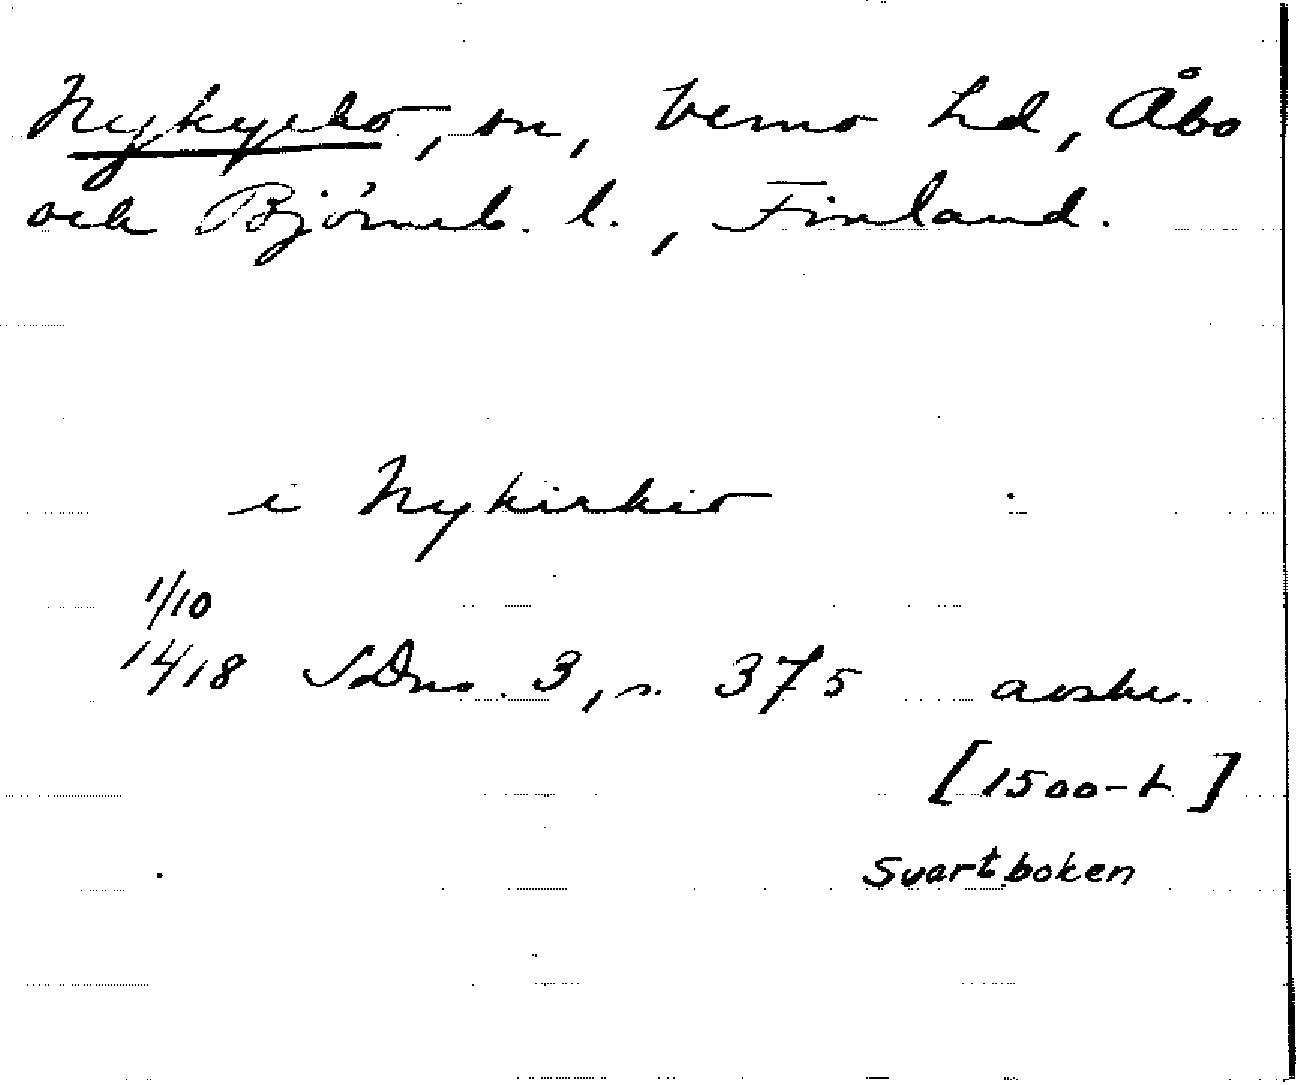 Nykyrko, sn, Vemo hd, Åbo
och Björneb. l., Finland.
i Nykirkio
1/10
1418 SDns. 3, s. 375 avskr.
[1500-t]
Svartboken